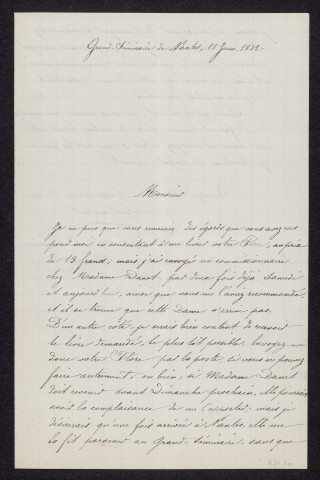 Grand-Séminaire de Nantes, 11 Juin, 1882.
Monsieur
Je ne puis que vous remercier des égards que vous avez eus
pour moi en consentant à me livrer votre Flore, au prix
de 13 francs, mais j'ai envoyé un commissionnaire
chez Madame Danet par deux fois déjà, Samedi
et aujourd'hui, ainsi que vous me l'aviez recommandé,
et il se trouve que cette Dame
D'un autre côté, je serais bien content de recevoir
le livre demandé, le plus tôt possible. Envoyez-
donc votre Flore par la poste, si vous ne pouvez
faire autrement, ou bien, si Madame Danet
doit revenir avant Dimanche prochain, elle pourrait
avoir la complaisance de me l'apporter; mais je
désirerais qu'une fois arrivée à Nantes, elle me
le fît parvenir au Grand-Séminaire, sans que